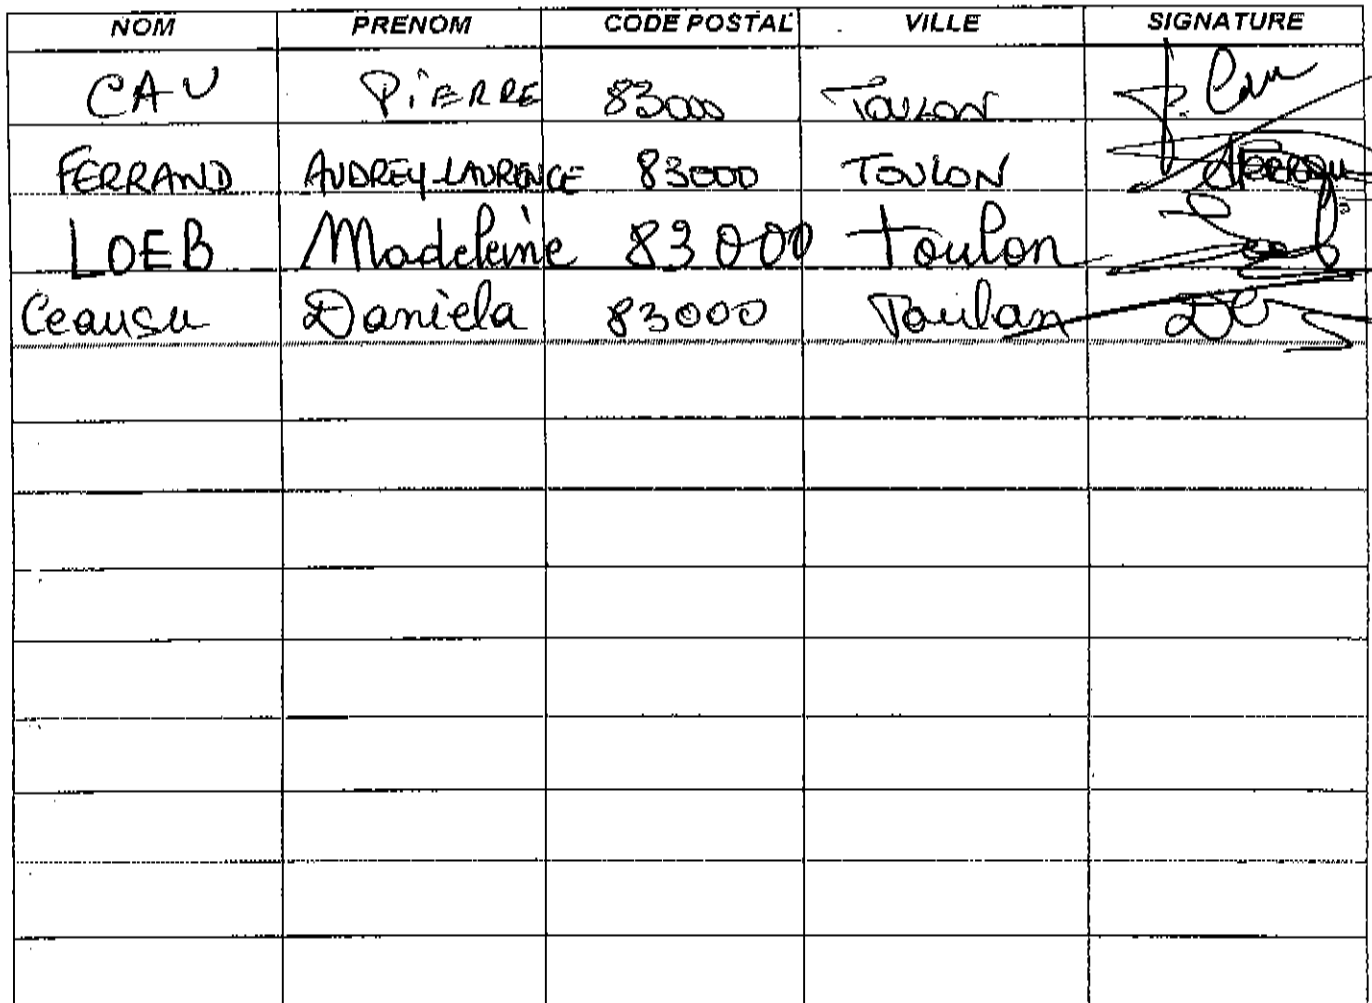 NOM PRENOM CODE POSTAL VILLE SIGNATURE
CAU PiERRE 83000 TOULON P. Cau
FERRAND AUDREY-LAURENCE 83000 TOULON
LOEB Madeleine 83000 Toulon
Ceausu Daniela 83000 Toulon